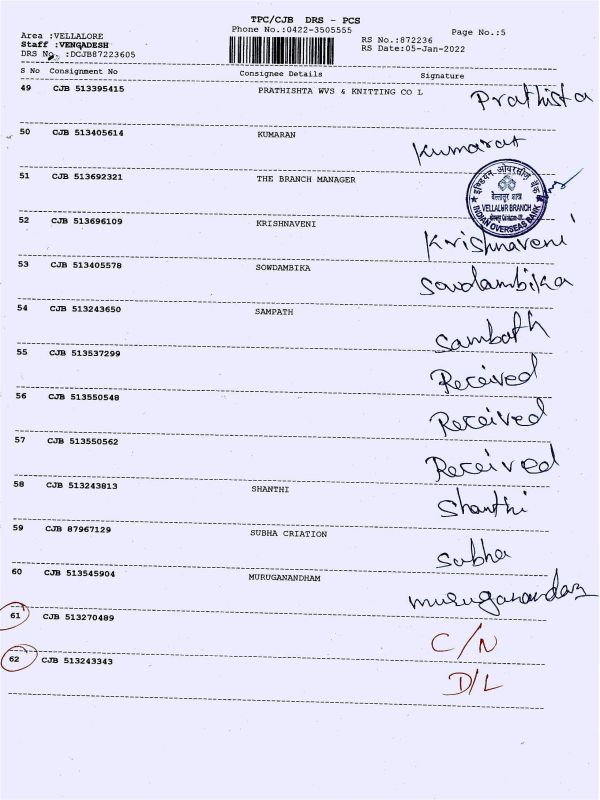 TPC/CJB DRS - PCS
Area :VELLALORE Phone No.:0422-3505555 Page No.:5
Staff :VENGADESH RS No.:872236
DRS No. :DCJB87223605 RS Date:05-Jan-2022
S No Consignment No Consignee Details Signature
49 CJB 513395415 PRATHISHTA WVS & KNITTING CO L Prathista
50 CJB 513405614 KUMARAN Kumaran
51 CJB 513692321 THE BRANCH MANAGER
इण्डियन ओवरसीज़ बैंक
VELLALUR BRANCH
INDIAN OVERSEAS BANK
52 CJB 513696109 KRISHNAVENI Krishnaveni
53 CJB 513405578 SOWDAMBIKA Sowdambika
54 CJB 513243650 SAMPATH Sambath
55 CJB 513537299 Received
56 CJB 513550548 Received
57 CJB 513550562 Received
58 CJB 513243813 SHANTHI Shanthi
59 CJB 87967129 SUBHA CRIATION Subha
60 CJB 513545904 MURUGANANDHAM
61 CJB 513270489 C/N
62 CJB 513243343 D/L